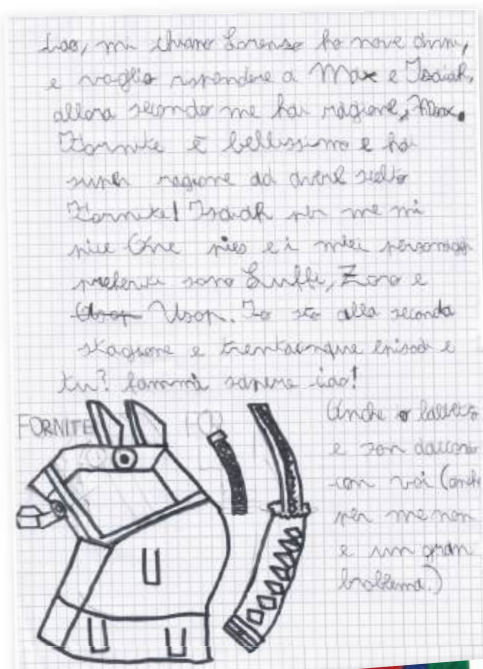 Ciao, mi chiamo Lorenzo ho nove anni,
e voglio rispondere a Max e Isaiah,
allora secondo me hai ragione, Max.
Fornite è bellissimo e hai
super ragione ad avere scelto
Fornite! Isaiah per me mi
pice One pies e i miei personaggi
preferiti sono Luffi, Zoro e
Usop Usop. Io sto alla seconda
stagione e trentacinque episodi e
tu? fammi sapere ciao!
FORNITE
Anche o
e son daccordo
con voi (anche
per me non
e un gran
broblema.)